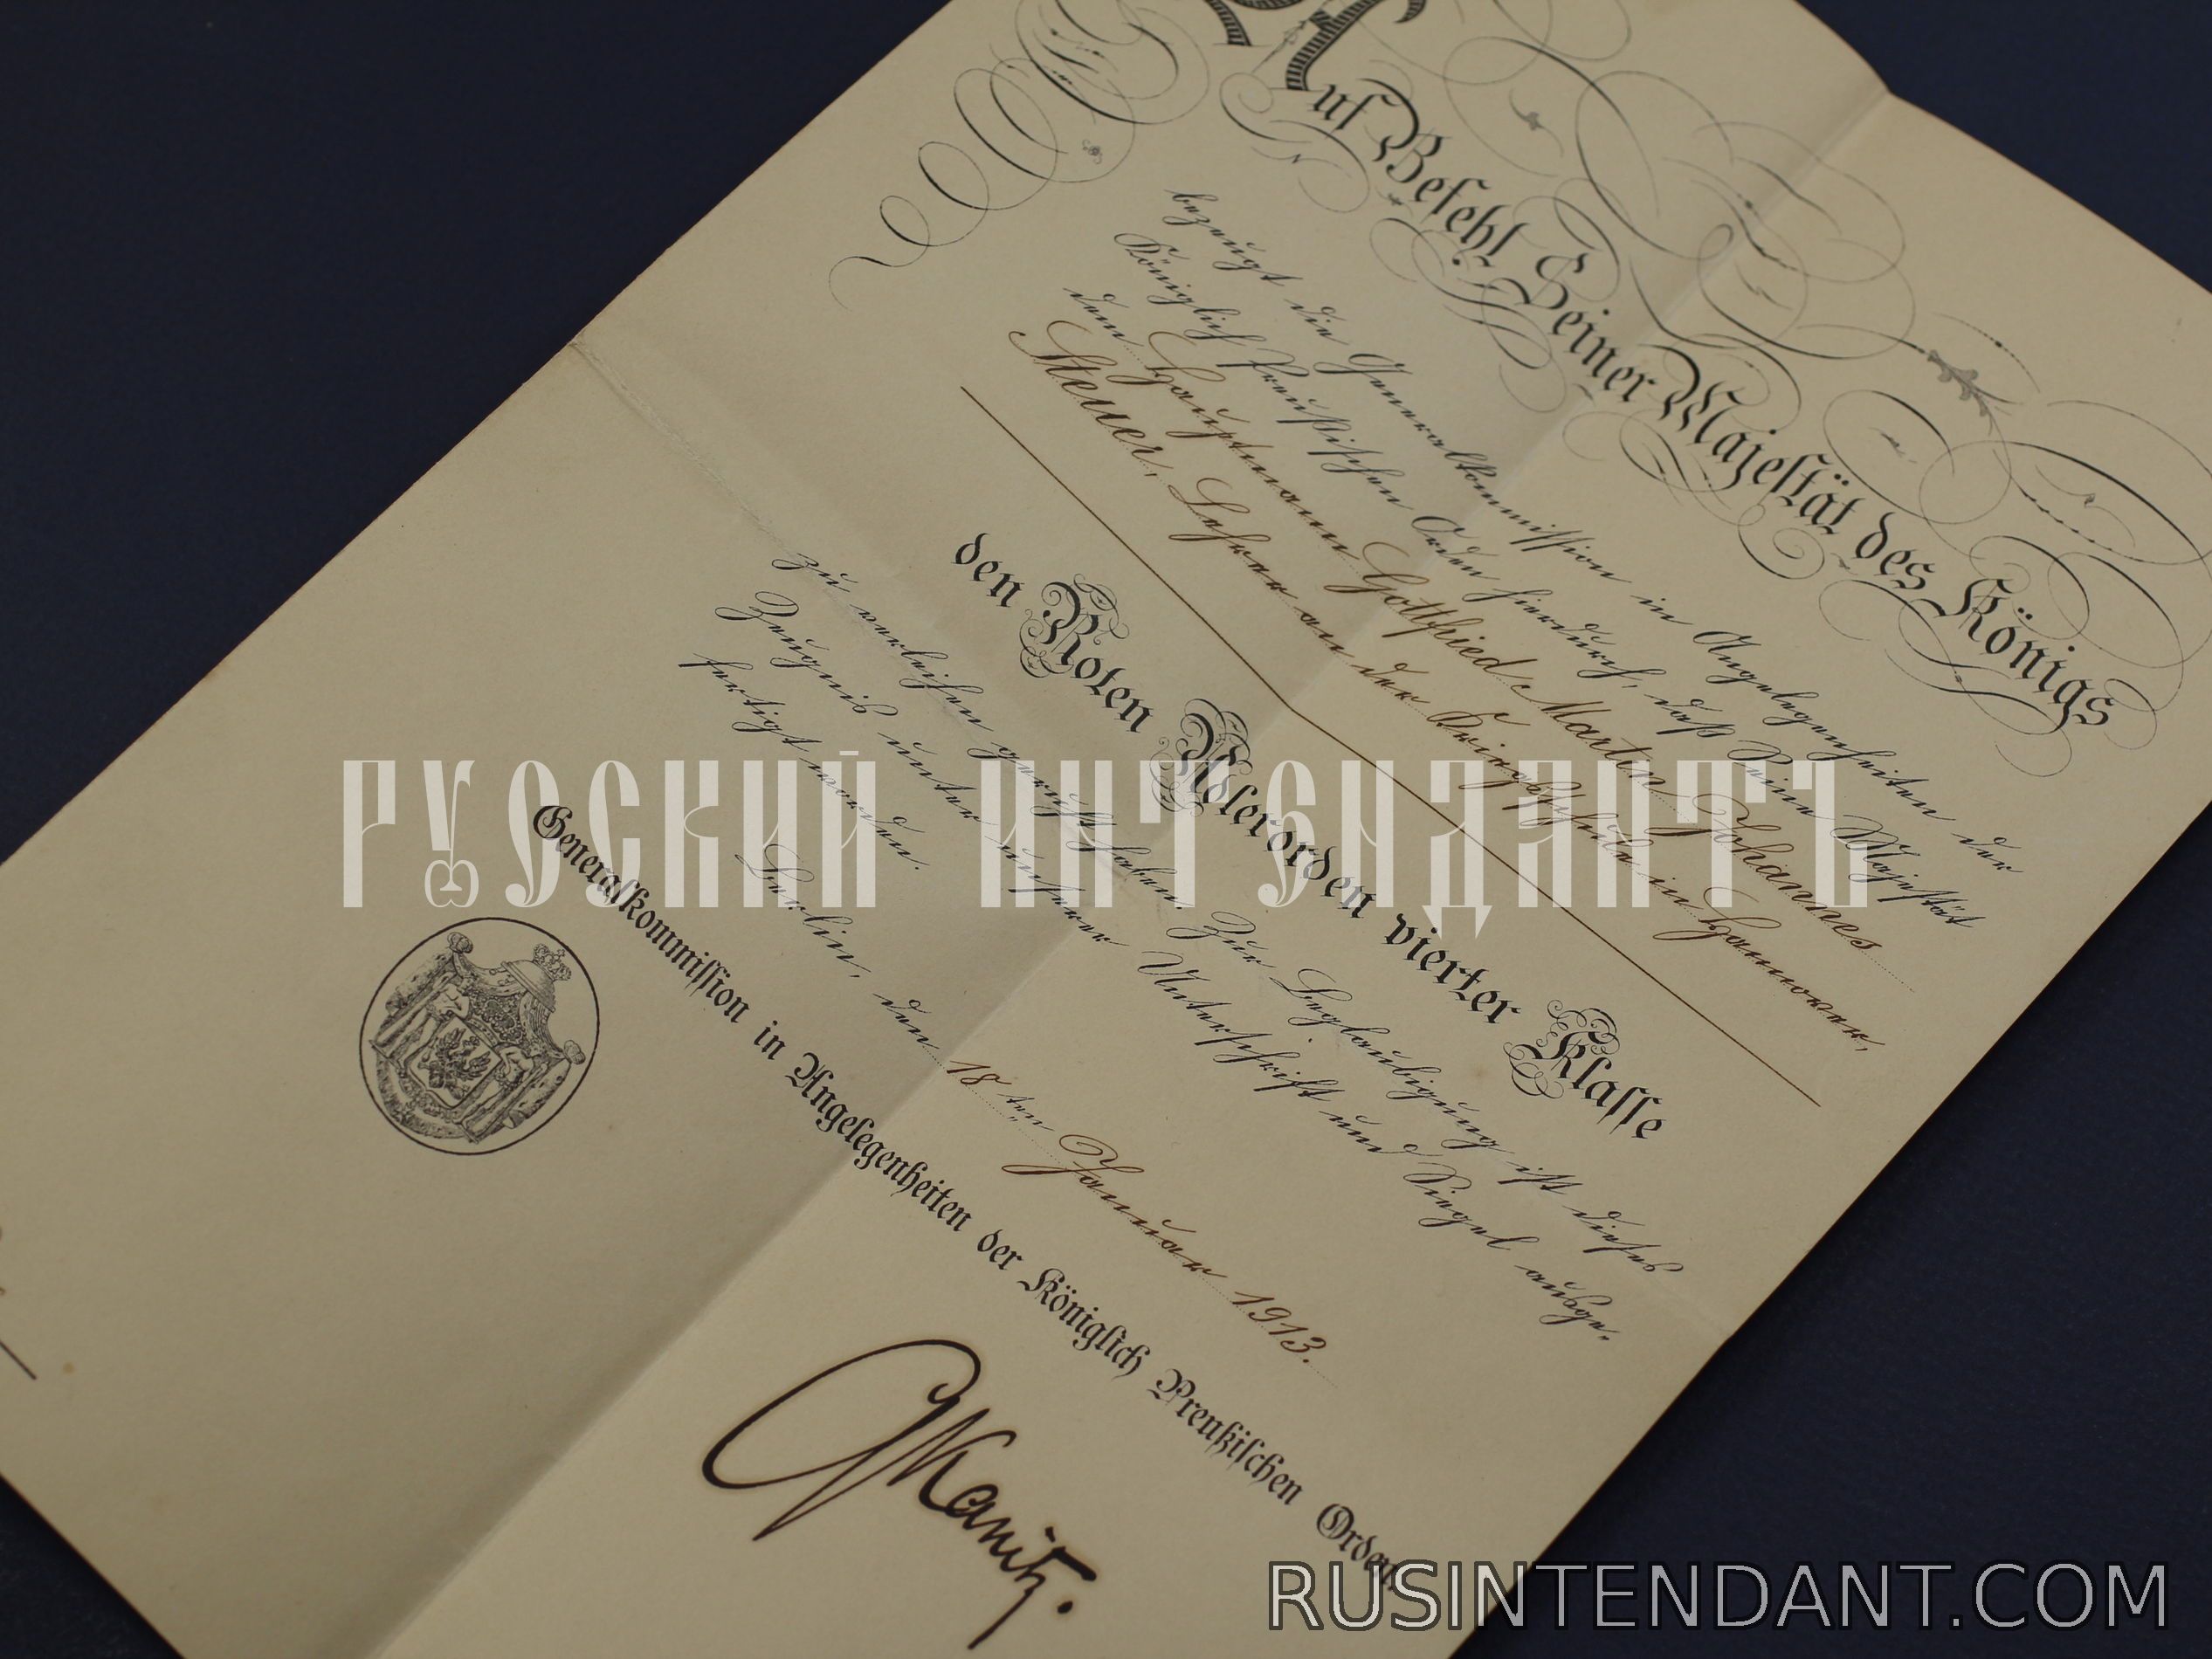 Auf Befehl Seiner Majestät des Königs
bezeugt die Generalkommission in Angelegenheiten der
Königlich Preußischen Orden hierdurch, daß Seine Majestät
dem Hauptmann Gottfried Martin Johannes
Steuer, Lehrer an der Kriegsschule in Hannover,
den Roten Adlerorden vierter Klasse
zu verleihen geruht haben. Zur Beglaubigung ist dieses
Zeugnis unter unserer Unterschrift und Siegel ausge-
fertigt worden.
Berlin, den 18ten Januar 1913.
Generalkommission in Angelegenheiten der Königlich Preußischen Orden.
Kanitz.
РУССКИЙ ИНТЕНДАНТЪ
RUSINTENDANT.COM